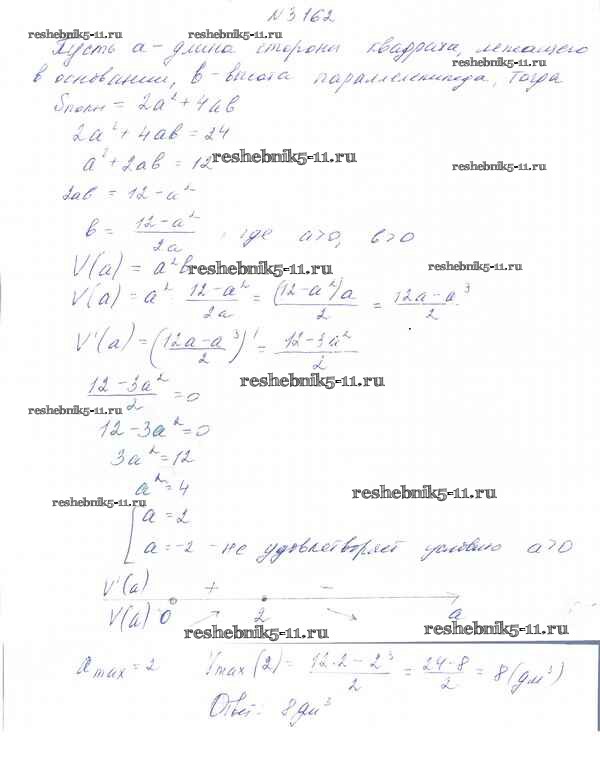 №3162
reshebnik5-11.ru reshebnik5-11.ru
Пусть a - длина стороны квадрата, лежащего
reshebnik5-11.ru
в основании, b - высота параллелепипеда, тогда
Sполн = 2a² + 4ab
2a² + 4ab = 24
a² + 2ab = 12
reshebnik5-11.ru reshebnik5-11.ru
2ab = 12 - a²
b = (12 - a²)/2a, где a>0, b>0
V(a) = a²b
reshebnik5-11.ru reshebnik5-11.ru
V(a) = a² · (12 - a²)/2a = (12 - a²)a/2 = (12a - a³)/2
V'(a) = ((12a - a³)/2)' = (12 - 3a²)/2
reshebnik5-11.ru
(12 - 3a²)/2 = 0
reshebnik5-11.ru
12 - 3a² = 0
3a² = 12
a² = 4
reshebnik5-11.ru reshebnik5-11.ru
[a = 2
[a = -2 - не удовлетворяет условию a>0
V'(a) + -
V(a) 0 ↗ 2 ↘ a
reshebnik5-11.ru reshebnik5-11.ru
a max = 2 V max (2) = (12·2 - 2³)/2 = (24-8)/2 = 8 (дм³)
Ответ: 8 дм³